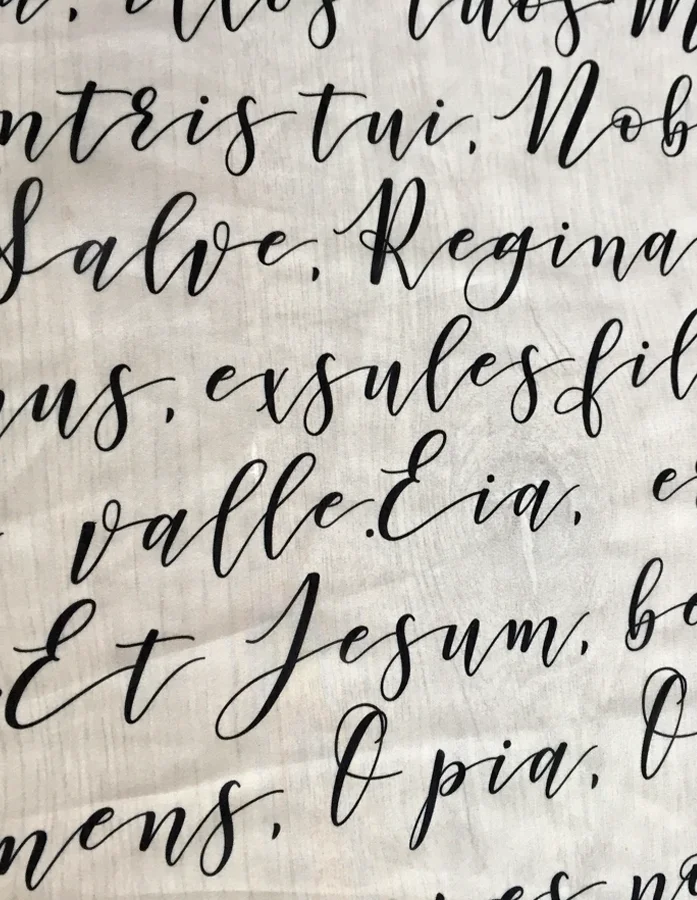 illos tuos m
ntris tui, Nob
Salve, Regina
us, exsules fil
valle. Eia, e
Et Jesum, be
O pia, O
mens,